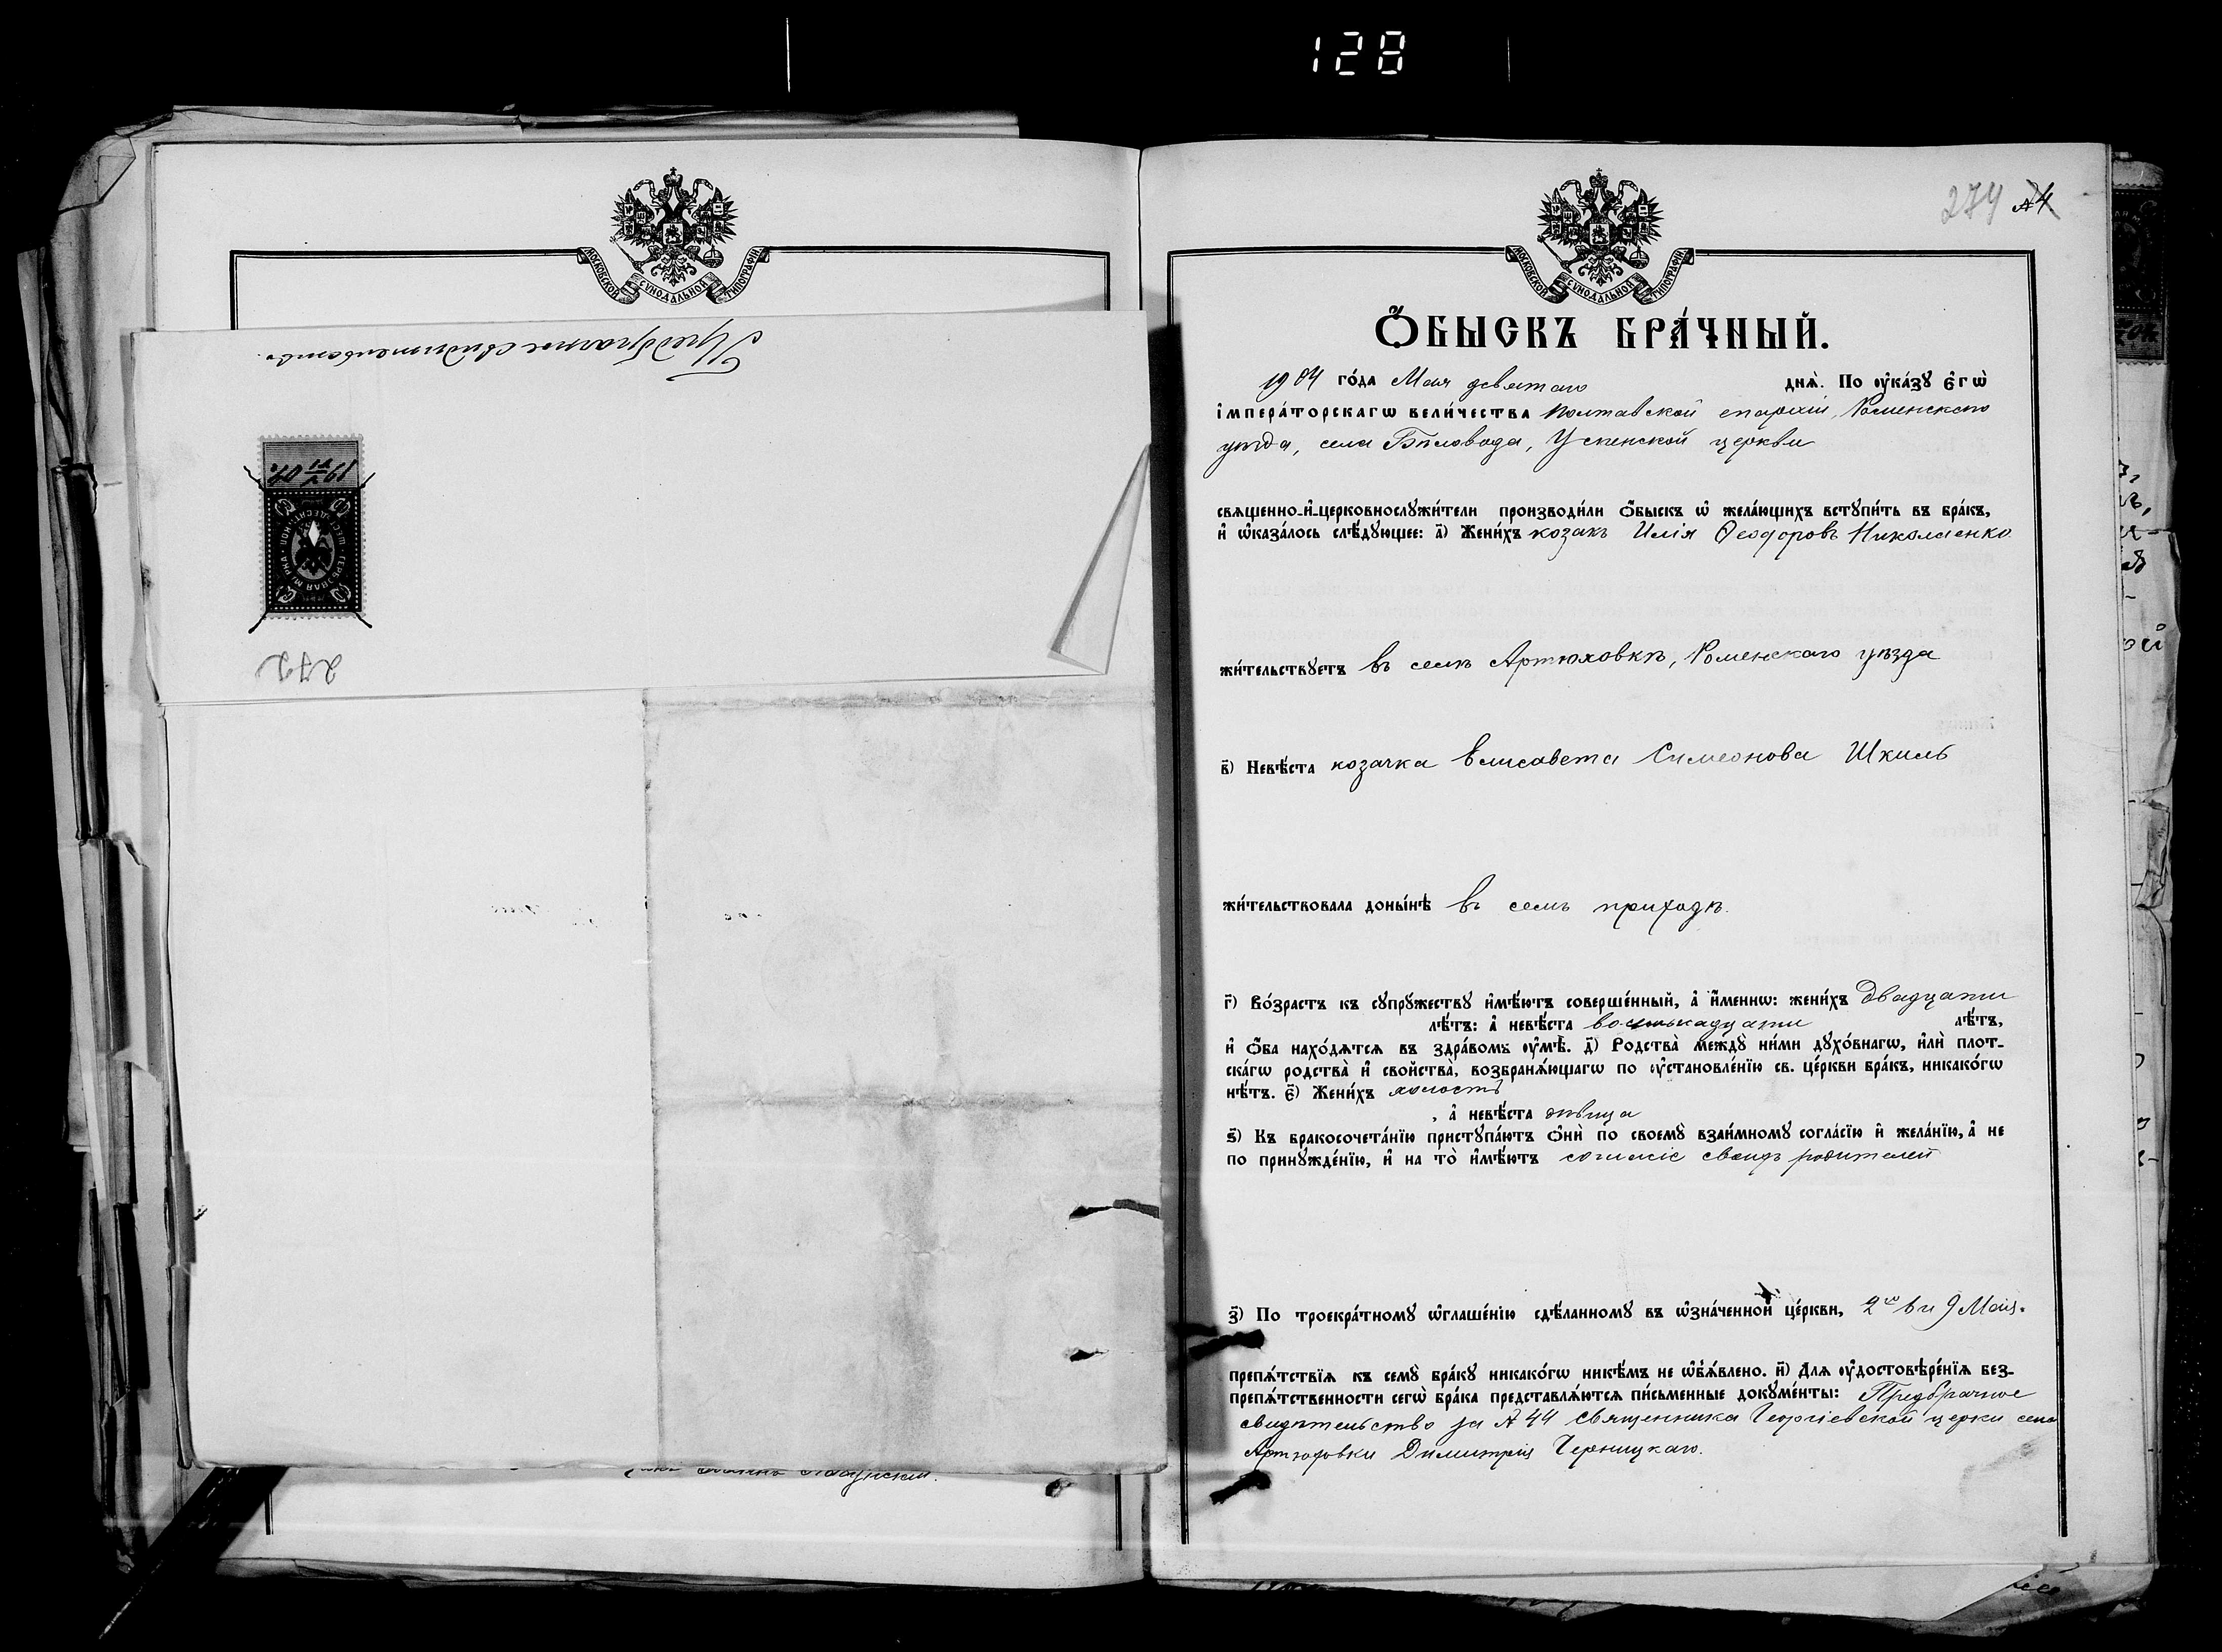 128
МОСКОВСКОЙ СѴНОДАЛЬНОЙ ТИПОГРАФІИ
Предбрачное свидѣтельство.
19 VI 04
ГЕРБОВАЯ МАРКА
272
274
МОСКОВСКОЙ СѴНОДАЛЬНОЙ ТИПОГРАФІИ
Ѻ҆БЫСКЪ БРА́ЧНЫЙ.
1904 го́да Мая девятаго днѧ̀. По ᲂу҆ка́зꙋ є҆гѡ̀
і҆мпера́торскагѡ вели́чества Полтавской епархіи, Роменскаго
уѣзда, села Бѣловода, Успенской церкви
свѧщенно-и҆-церковнослꙋжи́тели производи́ли ѻ҆́быскъ ѡ҆ жела́ющихъ встꙋпи́ть въ бра́къ,
и҆ ѡ҆каза́лось слѣ́дꙋющее: а҃) Жени́хъ козакъ Илія Ѳеодоровъ Николаенко
жи́тельствꙋетъ въ селѣ Артюховкѣ, Роменскаго уѣзда
в҃) Невѣ́ста козачка Елисавета Симеонова Шкиль
жи́тельствовала доны́нѣ въ семъ приходѣ.
г҃) Во́зрастъ къ сꙋпрꙋ́жествꙋ и҆мѣ́ютъ соверше́нный, а҆ и҆́меннѡ: жени́хъ двадцати
лѣ́тъ: а҆ невѣ́ста восьмнадцати лѣ́тъ,
и҆ ѻ҆́ба нахо́дѧтсѧ въ здра́вомъ ᲂу҆мѣ̀. д҃) Родства̀ междꙋ̀ ни́ми дꙋхо́внагѡ, и҆лѝ плот-
ска́гѡ родства̀ и҆ свойства̀, возбранѧ́ющагѡ по ᲂу҆становле́нїю св. це́ркви бра́къ, никако́гѡ
нѣ́тъ. є҃) Жени́хъ холостъ
, а҆ невѣ́ста дѣвица
ѕ҃) Къ бракосочета́нїю пристꙋпа́ютъ ѻ҆нѝ по своемꙋ̀ взаи́мномꙋ согла́сїю и҆ жела́нїю, а҆ не
по принꙋжде́нїю, и҆ на то̀ и҆мѣ́ютъ согласіе своихъ родителей
з҃) По троекра́тномꙋ ѡ҆глаше́нїю сдѣ́ланномꙋ въ ѡ҆зна́ченной це́ркви, 2го 6 и 9 Мая.
препѧ́тствїѧ къ семꙋ̀ бра́кꙋ никако́гѡ никѣ́мъ не ѡ҆б̾ѧ́влено. и҃) Длѧ ᲂу҆достовѣре́нїѧ без-
препѧ́тственности сегѡ̀ бра́ка представлѧ́ютсѧ пи́сьменные докꙋме́нты: Предбрачное
свидѣтельство за № 44 священника Георгіевской церкви села
Артюховки Димитрія Черницкаго.